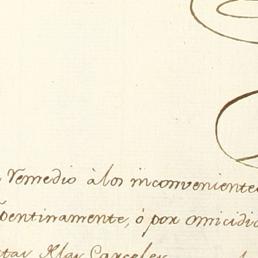 Remedio àlos inconveniente
pentinamente, ó por omicidio
Carceles